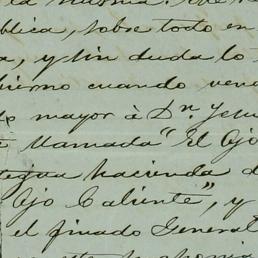 blica, sobre todo en
a, y sin duda lo
bierno cuando ven
mayor à Dn. Jesu
llamada "El Ojo
tigua hacienda d
Ojo Caliente", y
el finado General